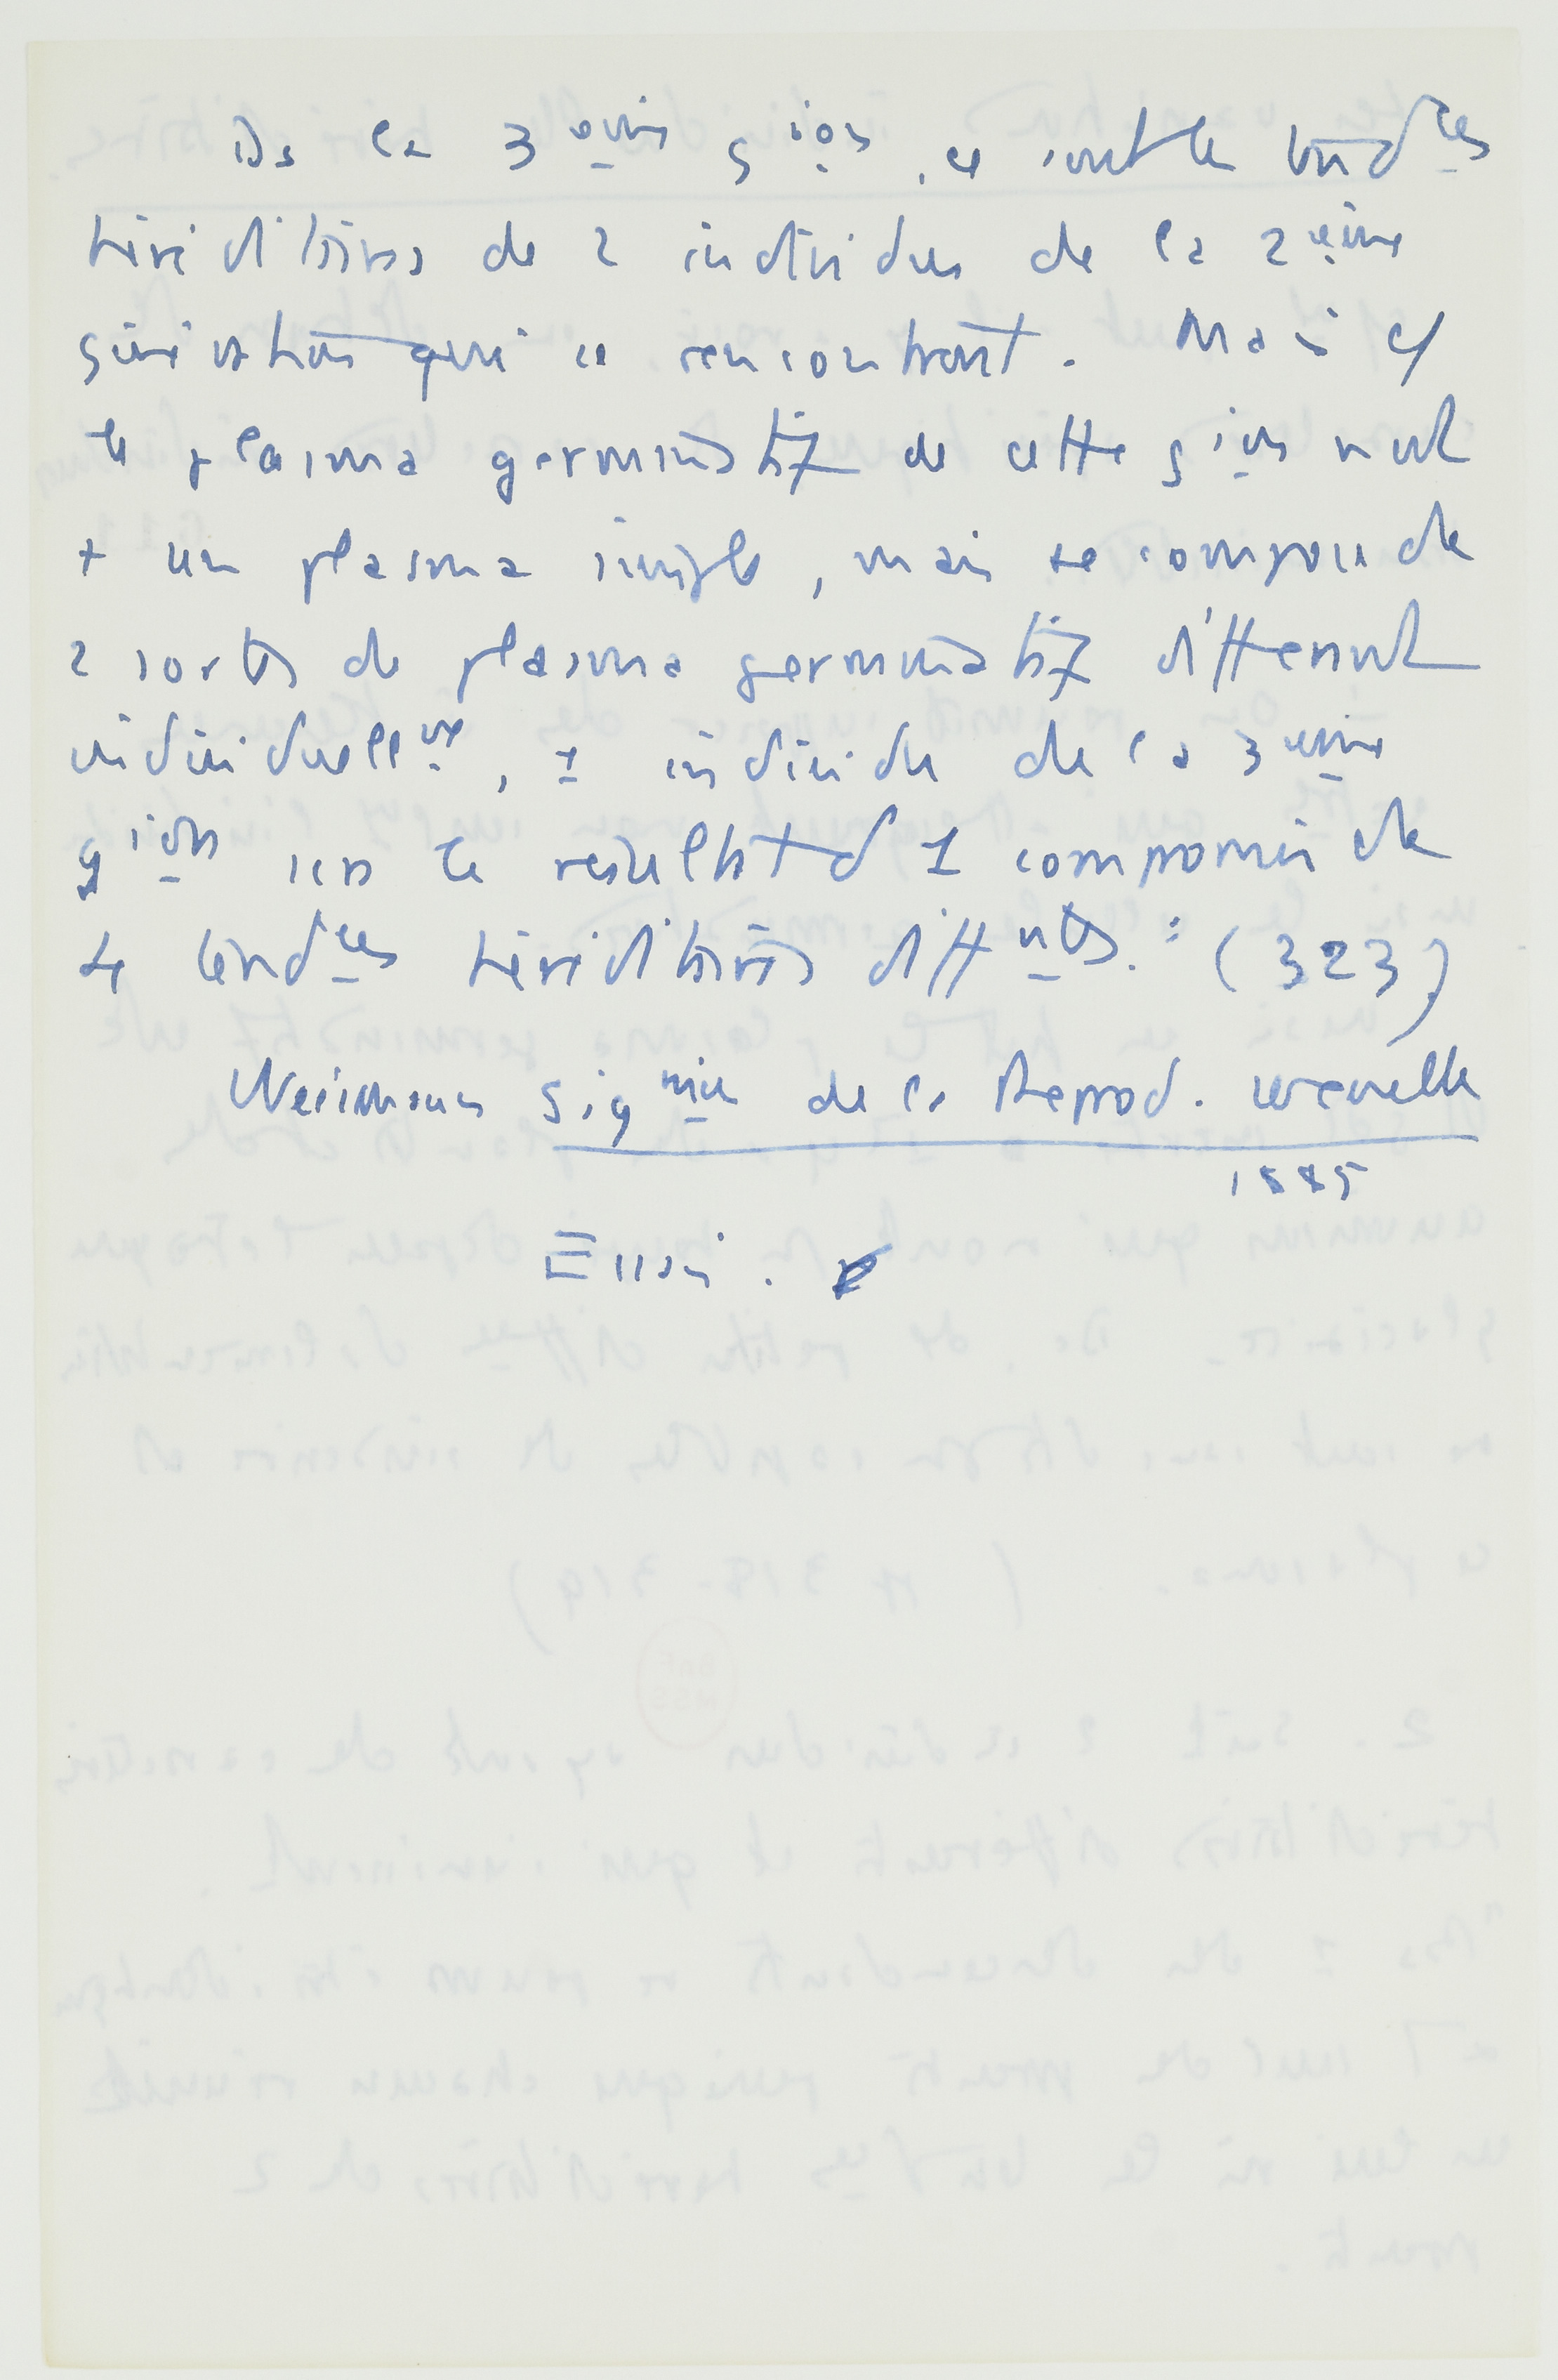 Ds la 3ème gion, ce sont les tendces
héréditaires de 2 individus de la 2ème
génération qui se rencontrent. Mais cf
le plasma germinatif de cette gion n'est
+ un plasma simple, mais se compose de
2 sortes de plasma germinatif différent
individuellmt, 1 individu de la 3ème
gion sera le résultat d'1 compromis de
4 tendces héréditaires diffntes : (323)
Weismann Signion de la Reprod. sexuelle
1885
Essai.